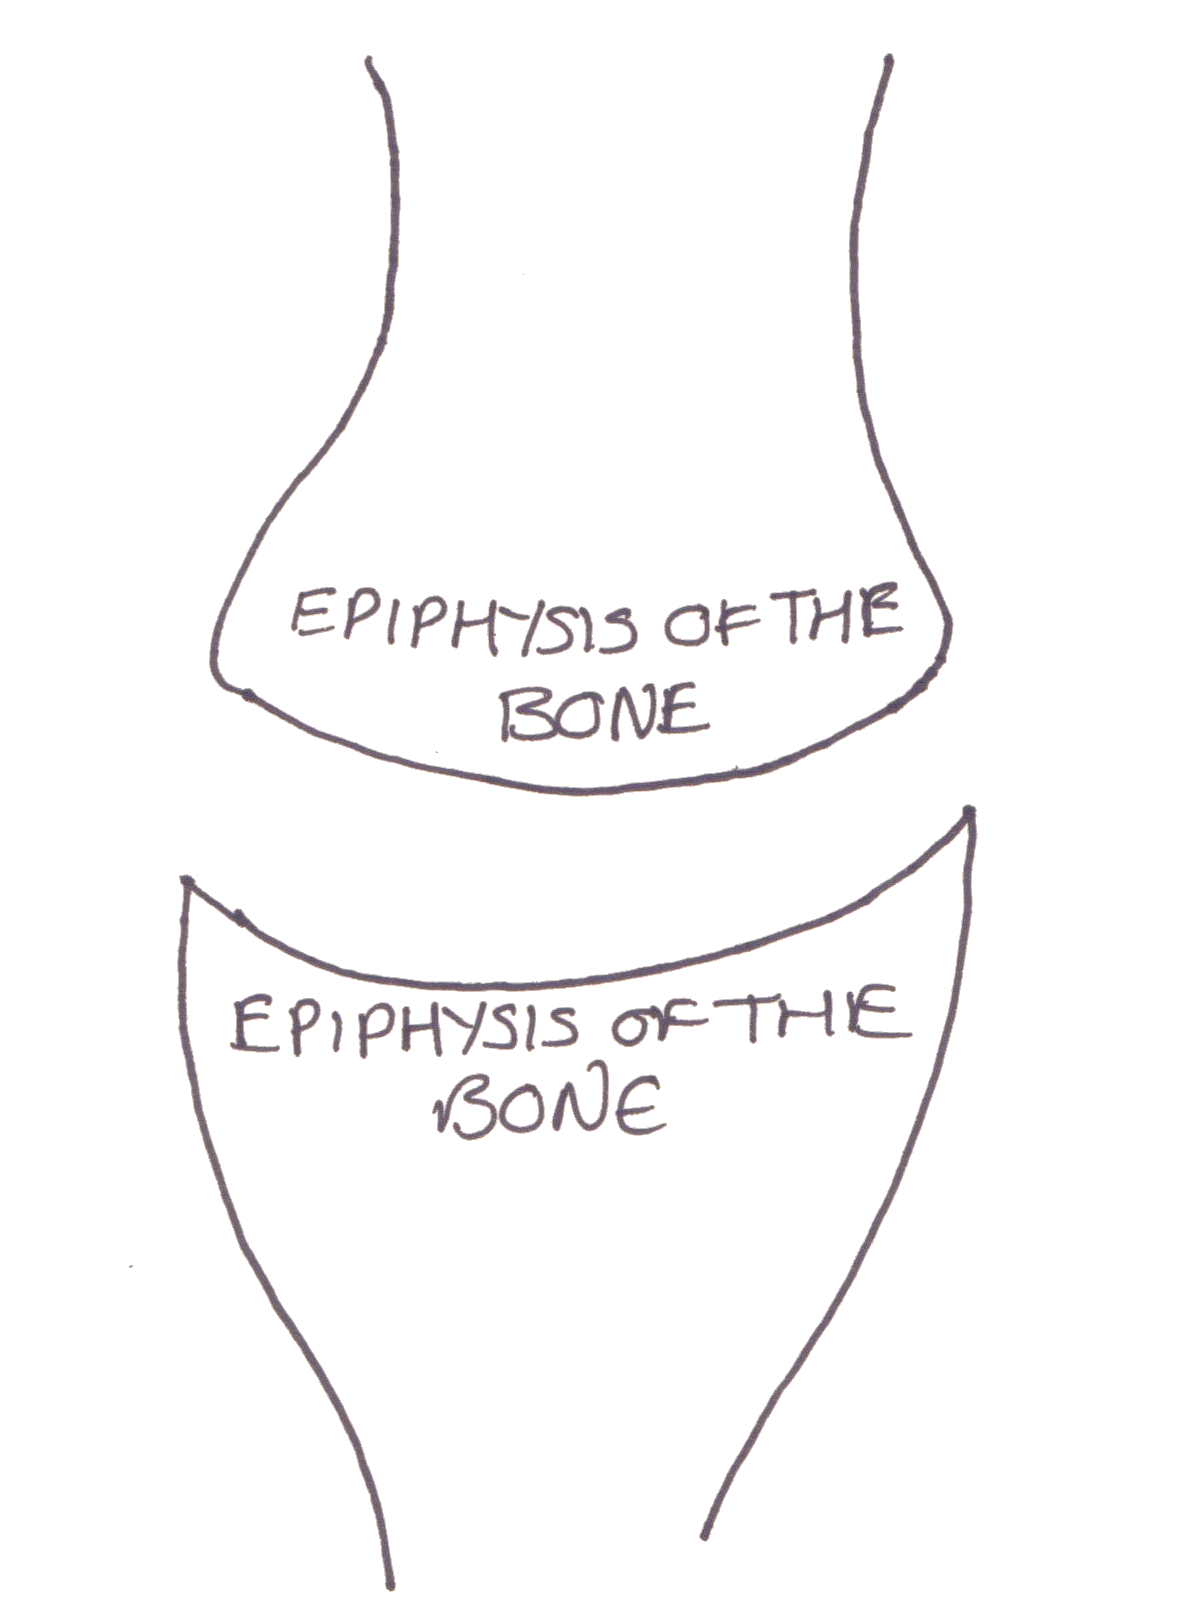 EPIPHYSIS OF THE
BONE
EPIPHYSIS OF THE
BONE